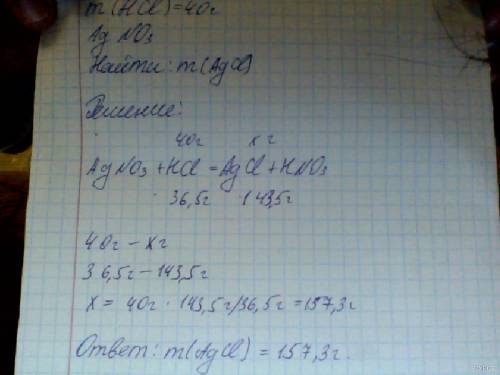 m(HCl)=40г
AgNO₃
Найти: m(AgCl)
Решение:
40г xг
AgNO₃+HCl=AgCl+HNO₃
36,5г 143,5г
40г – xг
36,5г – 143,5г
x = 40г · 143,5г/36,5г = 157,3г
Ответ: m(AgCl) = 157,3г.